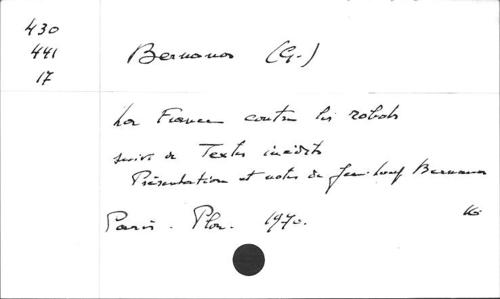 430
441
17
Bernanos (G.)
La France contre les robots
suivi de Textes inédits
Présentation et notes de Jean-Loup Bernanos
Paris. Plon. 1970.